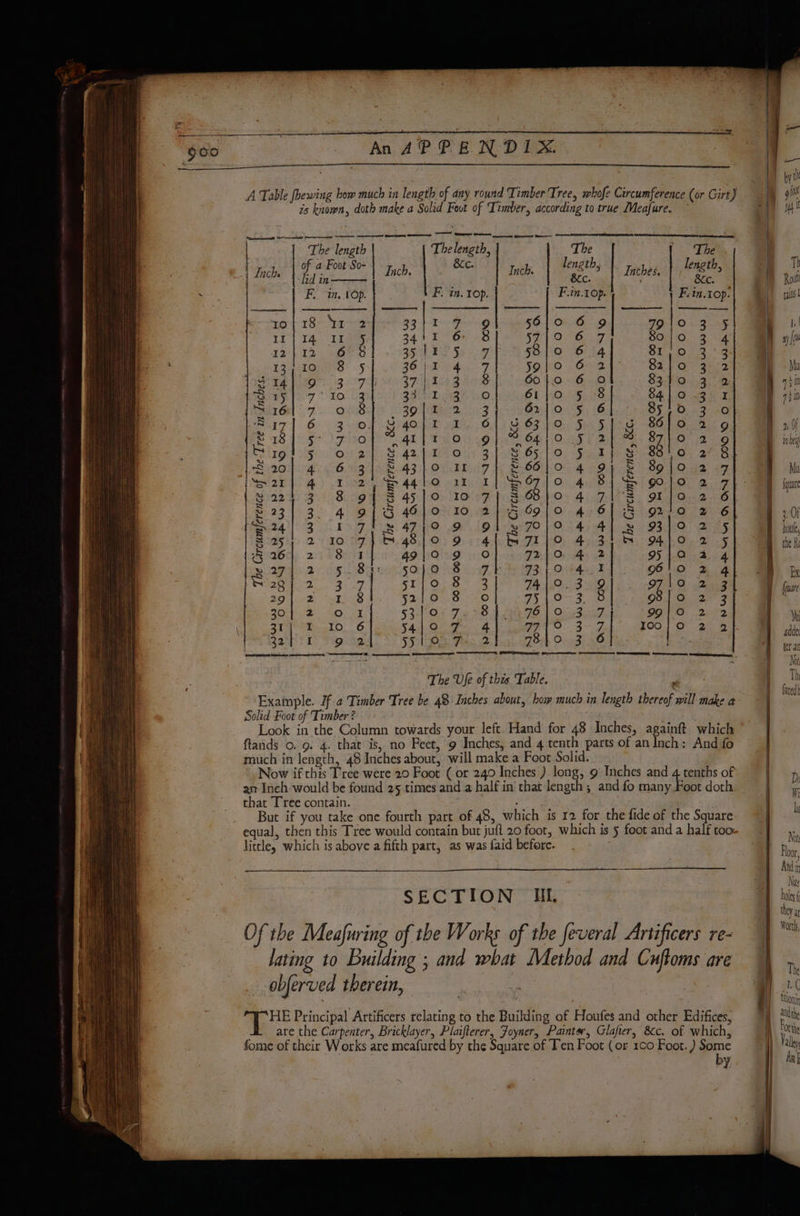 900 An APPENDIX.
A Table ſhewing how much in length of any round Timber Tree, whoſe Circumference (or Girt)
is known, doth make a Solid Foot of Timber, according to true Meaſure.
Inch. The length of a Foot So-lid in—— Inch. The length, &c. Inch. The length, &c. Inches. The length, &c.
F. in. 10p. F. in. 10p. F.in.10p. F.in.10p.
The Circumference of the Tree in Inches.
The Circumference, &c.
The Circumference, &c.
The Circumference, &c.
10 18 11 2 33 1 7 9 56 0 6 9 79 0 3 5
11 14 11 5 34 1 6 8 57 0 6 7 80 0 3 4
12 12 6 8 35 1 5 7 58 0 6 4 81 0 3 3
13 10 8 5 36 1 4 7 59 0 6 2 82 0 3 2
14 9 3 7 37 1 3 8 60 0 6 0 83 0 3 2
15 7 10 3 38 1 3 0 61 0 5 8 84 0 3 1
16 7 0 8 39 1 2 3 62 0 5 6 85 0 3 0
17 6 3 0 40 1 1 6 63 0 5 5 86 0 2 9
18 5 7 0 41 1 0 9 64 0 5 2 87 0 2 9
19 5 0 2 42 1 0 3 65 0 5 1 88 0 2 8
20 4 6 3 43 0 11 7 66 0 4 9 89 0 2 7
21 4 1 2 44 0 11 1 67 0 4 8 90 0 2 7
22 3 8 9 45 0 10 7 68 0 4 7 91 0 2 6
23 3 4 9 46 0 10 2 69 0 4 6 92 0 2 6
24 3 1 7 47 0 9 9 70 0 4 4 93 0 2 5
25 2 10 7 48 0 9 4 71 0 4 3 94 0 2 5
26 2 8 1 49 0 9 0 72 0 4 2 95 0 2 4
27 2 5 8 50 0 8 7 73 0 4 1 96 0 2 4
28 2 3 7 51 0 8 3 74 0 3 9 97 0 2 3
29 2 1 8 52 0 8 0 75 0 3 8 98 0 2 3
30 2 0 1 53 0 7 8 76 0 3 7 99 0 2 2
31 1 10 6 54 0 7 4 77 0 3 7 100 0 2 2
32 1 9 2 55 0 7 2 78 0 3 6
The Uſe of this Table.
Example. If a Timber Tree be 48 Inches about, how much in length thereof will make a
Solid Foot of Timber?
Look in the Column towards your left Hand for 48 Inches, againſt which
ſtands 0. 9. 4. that is, no Feet, 9 Inches, and 4 tenth parts of an Inch: And ſo
much in length, 48 Inches about, will make a Foot Solid.
Now if this Tree were 20 Foot (or 240 Inches) long, 9 Inches and 4 tenths of
an Inch would be found 25 times and a half in that length; and ſo many Foot doth
that Tree contain.
But if you take one fourth part of 48, which is 12 for the ſide of the Square
equal, then this Tree would contain but juſt 20 foot, which is 5 foot and a half too
little, which is above a fifth part, as was ſaid before.
SECTION III.
Of the Meaſuring of the Works of the ſeveral Artificers re-
lating to Building; and what Method and Cuſtoms are
obſerved therein,
THE Principal Artificers relating to the Building of Houſes and other Edifices,
are the Carpenter, Bricklayer, Plaiſterer, Joyner, Painter, Glaſier, &c. of which,
ſome of their Works are meaſured by the Square of Ten Foot (or 100 Foot.) Some
by